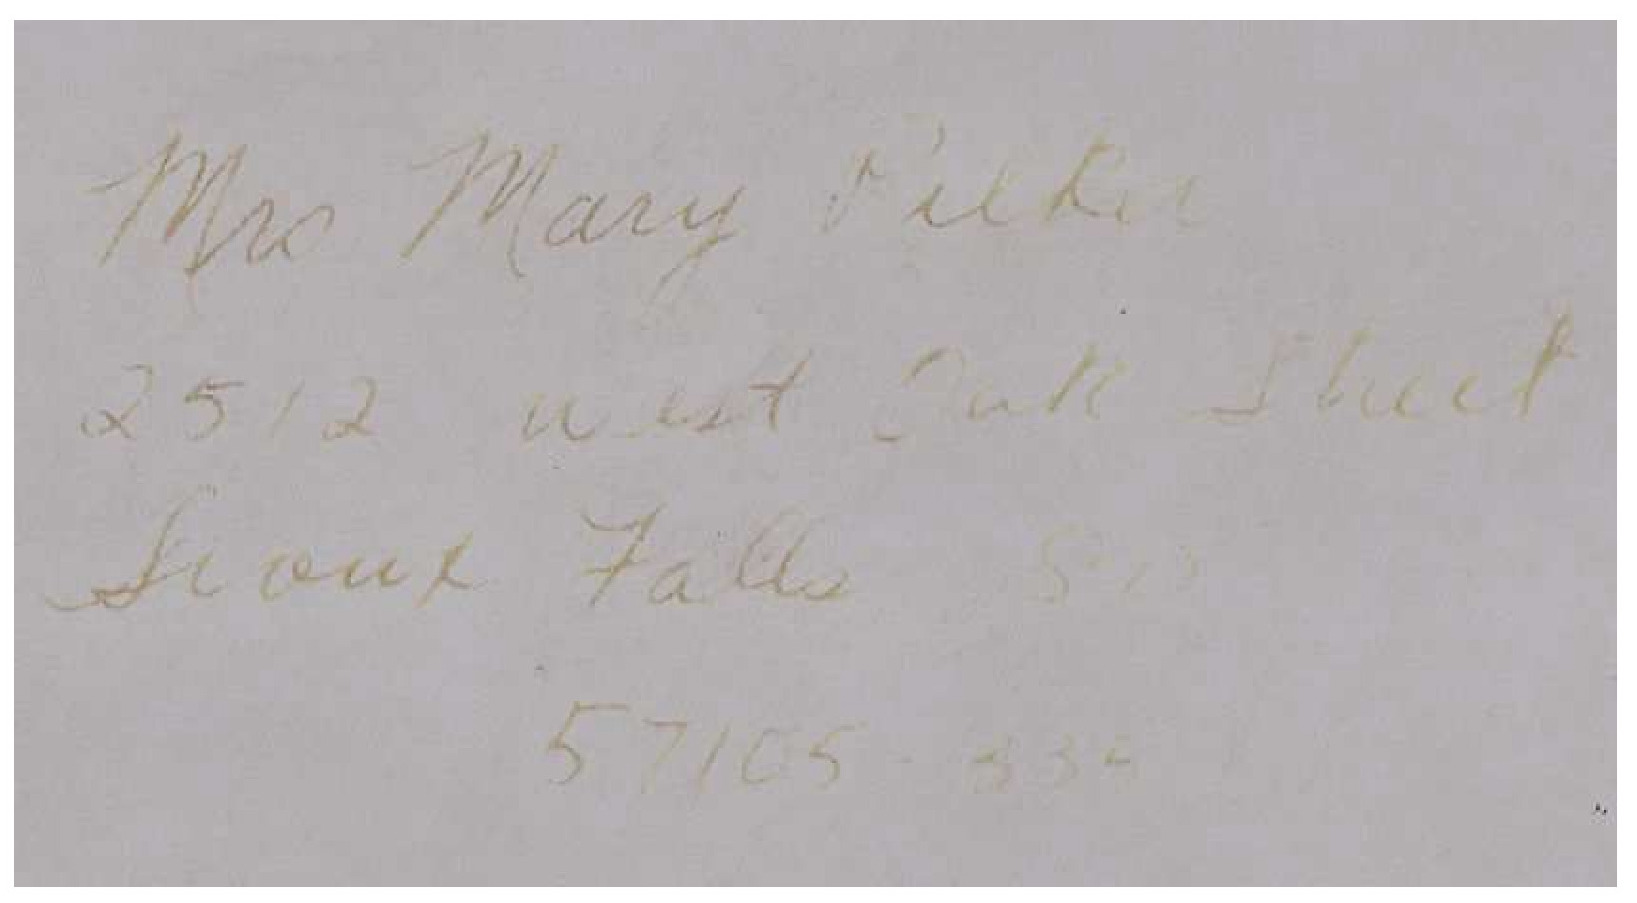 Mrs Mary
2512 west Oak Street
Sioux Falls SD
57105